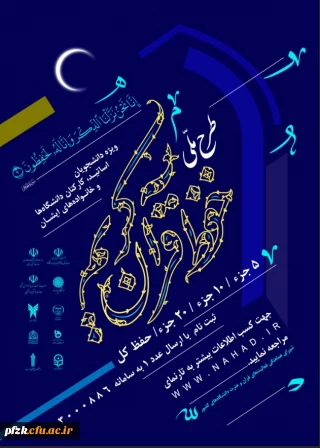 إِنَّا نَحْنُ نَزَّلْنَا الذِّكْرَ وَإِنَّا لَهُ لَحَافِظُونَ
طرح ملی
حفظ قرآن کریم
ویژه دانشجویان
اساتید، کارکنان دانشگاه‌ها
و خانواده‌های ایشان
۵ جزء / ۱۰ جزء / ۲۰ جزء / حفظ کل
ثبت نام با ارسال عدد ۱ به سامانه ۳۰۰۰۸۸۶
جهت کسب اطلاعات بیشتر به تارنمای
WWW.NAHAD.IR
مراجعه نمایید
pfzk.cfu.ac.ir